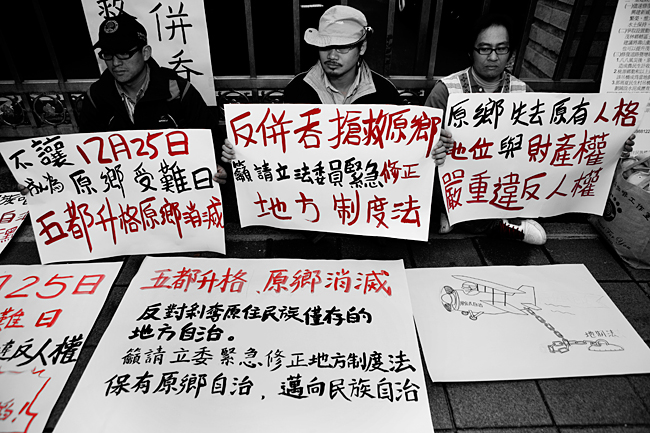 救
併吞
不讓12月25日
成為原鄉受難日
五都升格原鄉消滅
反併吞搶救原鄉
籲請立法委員緊急修正
地方制度法
原鄉失去原有人格
地位與財產權
嚴重違反人權
25日
難日
違反人權
五都升格、原鄉消滅
反對剝奪原住民族僅存的
地方自治。
籲請立委緊急修正地方制度法
保有原鄉自治，邁向民族自治
地制法